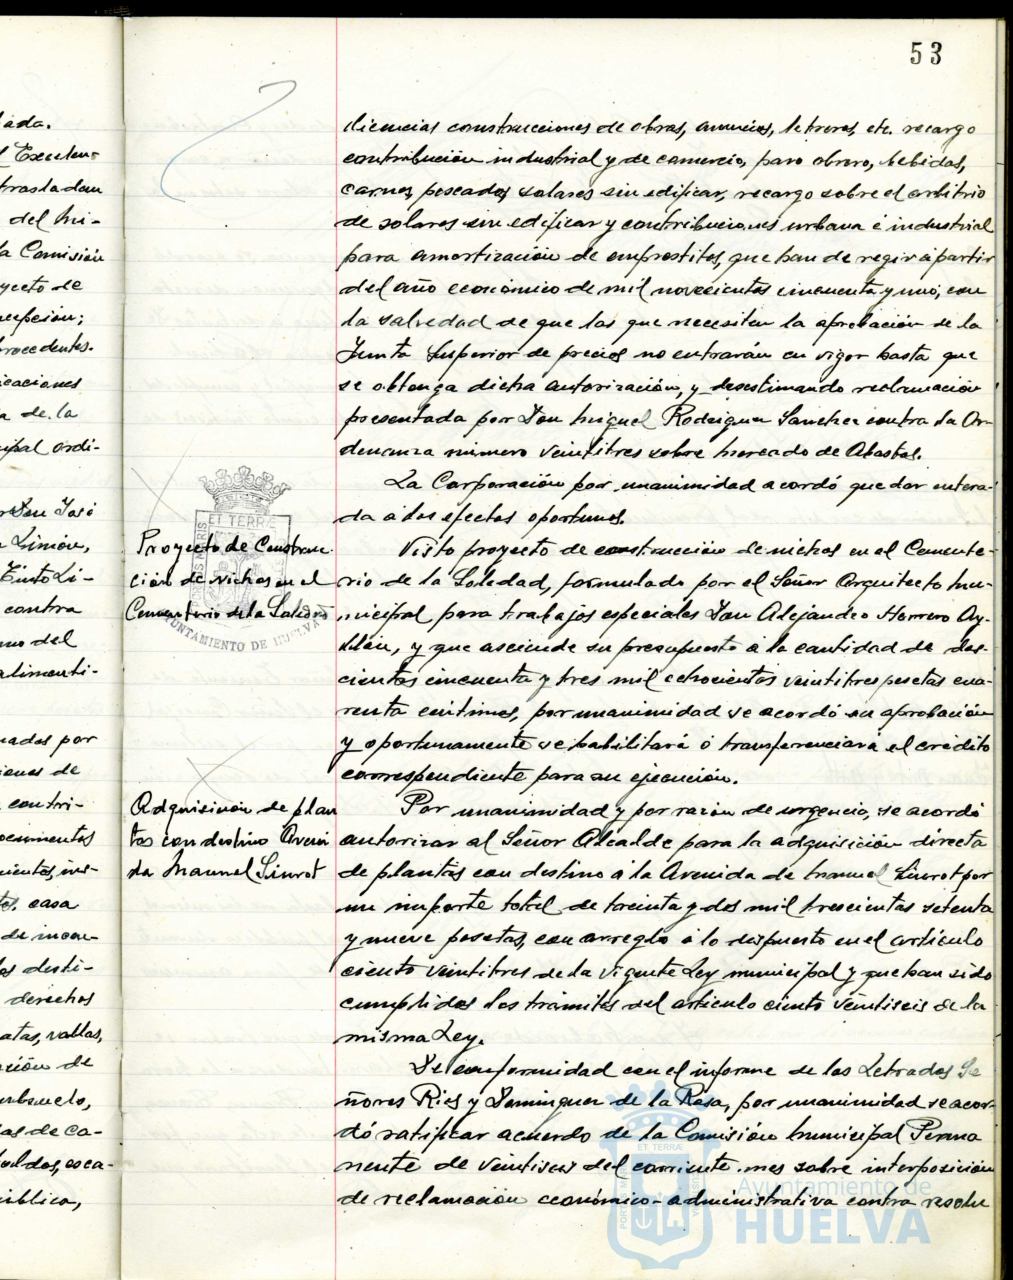 53
iada.
l Excelen-
trasladan
del Mi-
la Comisión
yecto de
cepción;
procedentes.
icaciones
a de la
ipal ordi-
r Don José
Limón,
Pinto Li-
contra
mo del
alimenti-
nados por
iones de
contri-
ocumentos
cientas, ins-
casa
de incen-
los desti-
derechos
atas, vallas,
ción de
ubsuelo,
ias de ca-
toldos, esca-
ública,
licencias construcciones de obras, anuncios, letreros, etc. recargo
contribución industrial y de comercio, paro obrero, bebidas,
carnes, pescados, solares sin edificar, recargo sobre el arbitrio
de solares sin edificar y contribuciones urbana é industrial
para amortización de empréstitos, que han de regir á partir
del año económico de mil novecientos cincuenta y uno; con
la salvedad de que las que necesiten la aprobación de la
Junta Superior de precios no entrarán en vigor hasta que
se obtenga dicha autorización, y desestimando reclamación
presentada por Don Miguel Rodriguez Sanchez contra la Or-
denanza número veintitres sobre Mercado de Abastos.
La Corporación por unanimidad acordó quedar entera-
da á los efectos oportunos.
Proyecto de Construc-
ción de nichos en el
Cementerio de la Soledad
Visto proyecto de construcción de nichos en el Cemente-
rio de la Soledad, formulado por el Señor Arquitecto Mu-
nicipal para trabajos especiales Don Alejandro Herrero Ay-
llón, y que asciende su presupuesto á la cantidad de dos-
cientas cincuenta y tres mil ochocientas veintitres pesetas cua-
renta céntimos, por unanimidad se acordó su aprobación
y oportunamente se habilitará ó transferenciará el crédito
correspondiente para su ejecución.
Adquisición de plan
tas con destino Aveni
da Manuel Siurot
Por unanimidad y por razón de urgencia, se acordó
autorizar al Señor Alcalde para la adquisición directa
de plantas con destino á la Avenida de Manuel Siurot por
un importe total de treinta y dos mil trescientas setenta
y nueve pesetas, con arreglo á lo dispuesto en el artículo
ciento veintitres de la vigente Ley municipal y que han sido
cumplidos los trámites del artículo ciento veintiseis de la
misma Ley.
De conformidad con el informe de los Letrados Se
ñores Rios y Dominguez de la Rosa, por unanimidad se acor-
dó ratificar acuerdo de la Comisión Municipal Perma
nente de veintiseis del corriente mes sobre interposición
de reclamación económico-administrativa contra resolu
ET TERRÆ
AYUNTAMIENTO DE HUELVA
Ayuntamiento de
HUELVA